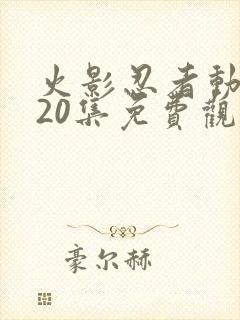 火影忍者動
20集免費觀
豪尔赫